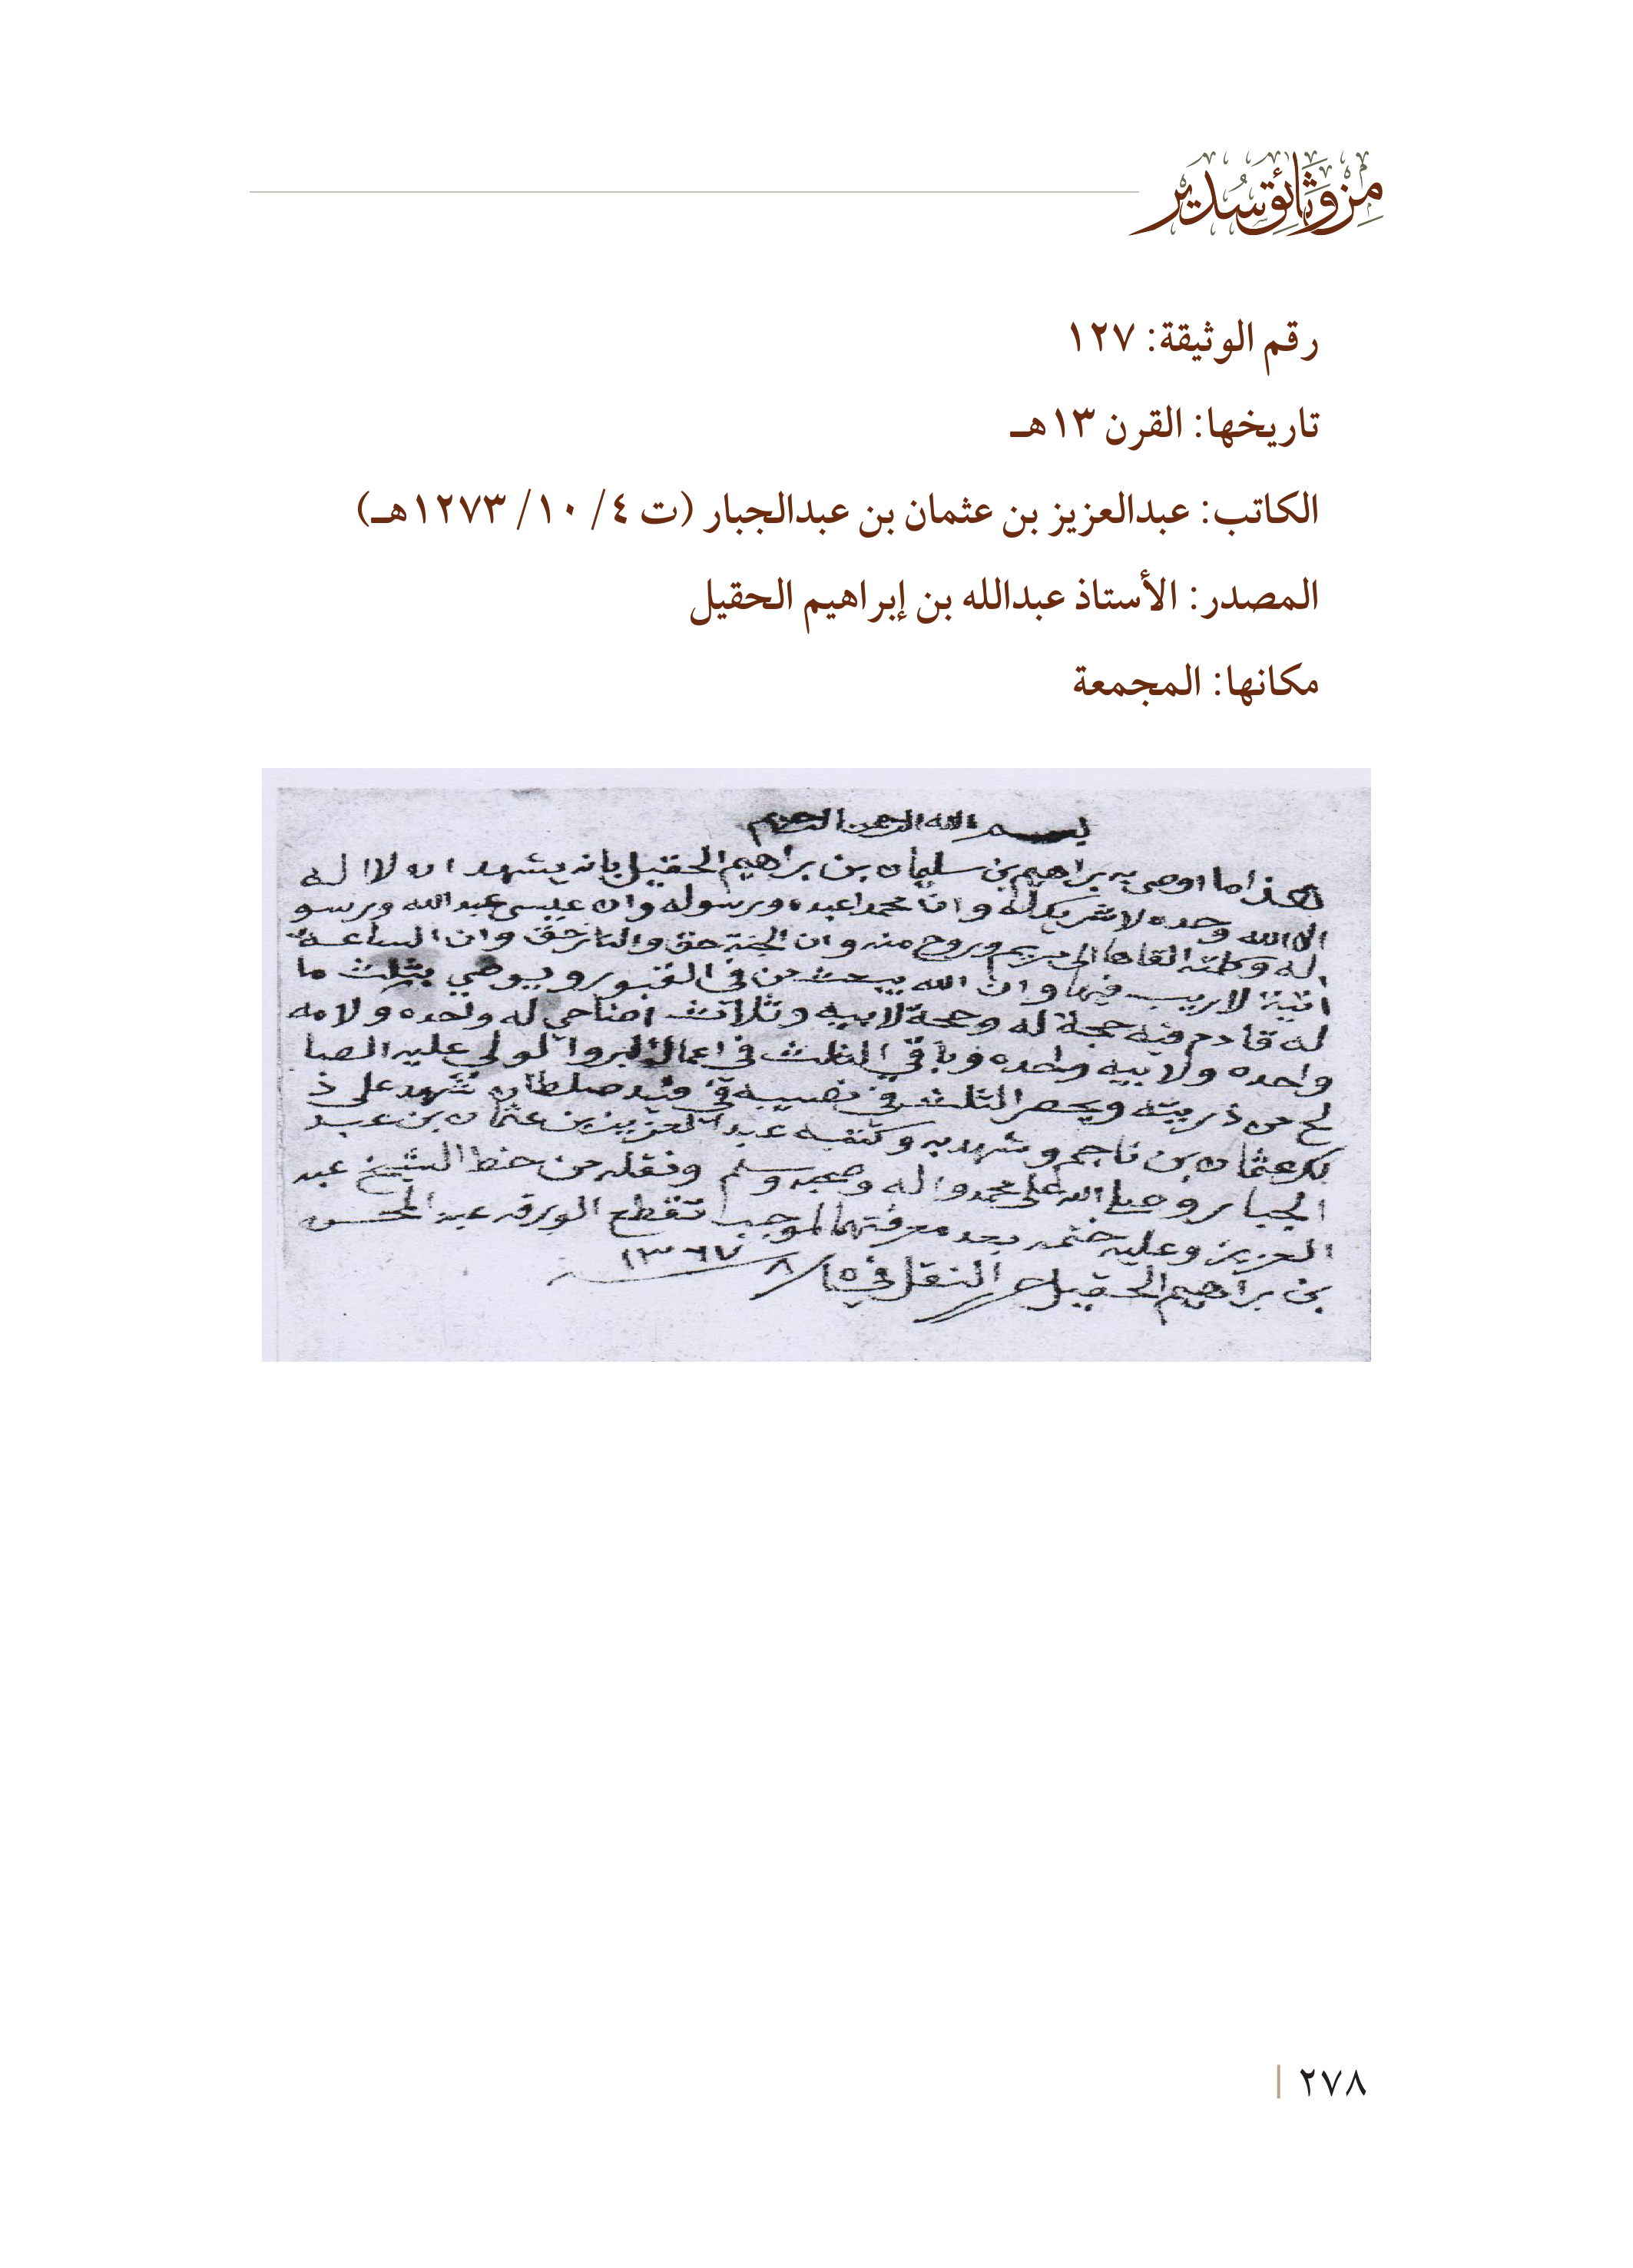 من وثائق سدير
رقم الوثيقة: ١٢٧
تاريخها: القرن ١٣هـ
الكاتب: عبدالعزيز بن عثمان بن عبدالجبار (ت ٤/ ١٠/ ١٢٧٣هـ)
المصدر: الأستاذ عبدالله بن إبراهيم الحقيل
مكانها: المجمعة
بسم الله الرحمن الرحيم
هذا ما اوصى به براهيم بن سليمان بن براهيم الحقيل بانه يشهد ان لا اله
الا الله وحده لا شريك له وان محمدا عبده ورسوله وان عيسى عبد الله ورسو
له وكلمته القاها الى مريم وروح منه وان الجنة حق والنار حق وان الساعة
اتية لا ريب فيها وان الله يبعث من في القبور ويوصي بثلث ما
له قادم فيه حجة له وحجة لابيه وثلاث اضاحي له واحده ولامه
واحده ولابيه واحده وباقي الثلث في اعمال البر والولي عليه الصا
لح من ذريته ويحصر الثلث في نصيبه في صلطان شهد على ذ
لك عثمان بن ناجم وشهد به وكتبه عبد العزيز بن عثمان بن عبد
الجبار وصلى الله على محمد واله وصحبه وسلم ونقله من خط الشيخ عبد
العزيز وعليه ختمه بعد معرفتهما لموجب تقطع الورقه عبد المحسن
بن براهيم الحقيل حرر النقل في ٨/١٥ ١٣٦٧
٢٧٨